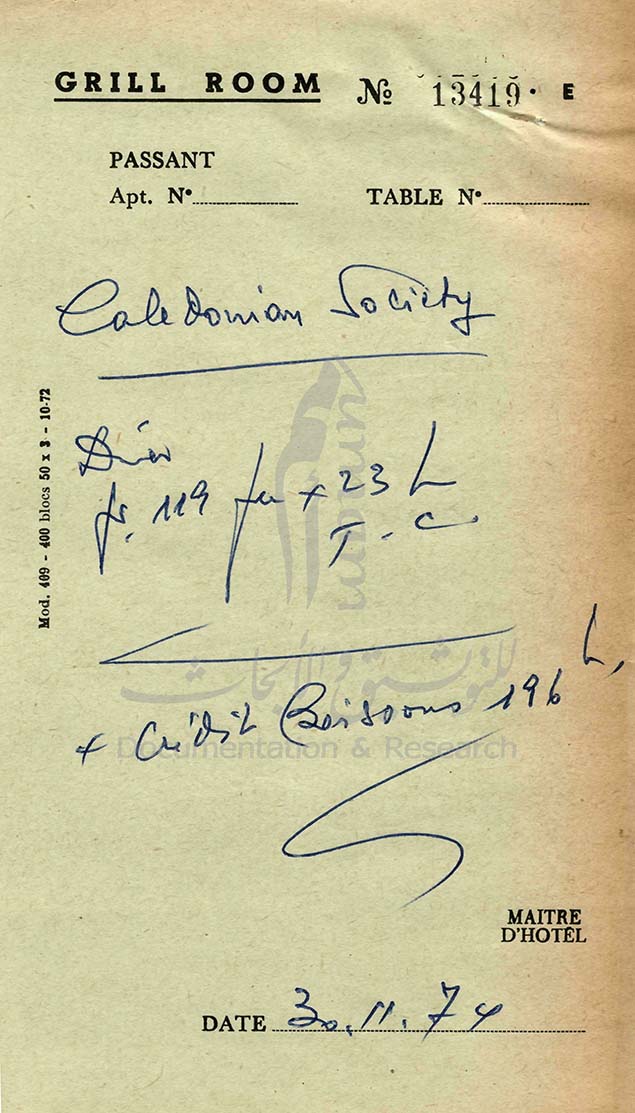 GRILL ROOM № 13419 · E
PASSANT
Apt. N°
TABLE N°
Caledonian Society
Mod. 409 - 400 blocs 50 x 3 - 10-72
119
x 23 L
T. C
umam
للتوثيق والأبحاث
Documentation & Research
+ Crédit Boissons 196 L.
MAITRE
D'HOTEL
DATE 30.11.74